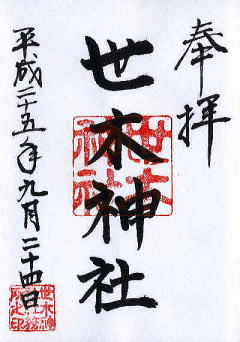 奉拝
世木神社
平成二十五年九月二十四日
世木神社